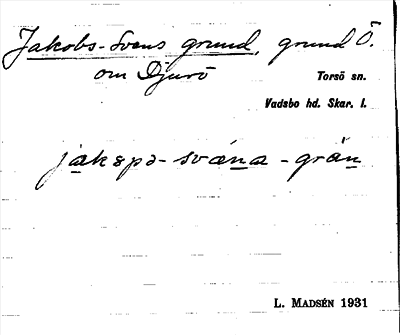 Jakobs-Svens grund, grund Ö.
om Djurö
Torsö sn.
Vadsbo hd. Skar. l.
jakspə- svæna - grån
L. MADSÉN 1931